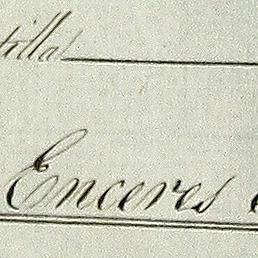 tilla
Enceres